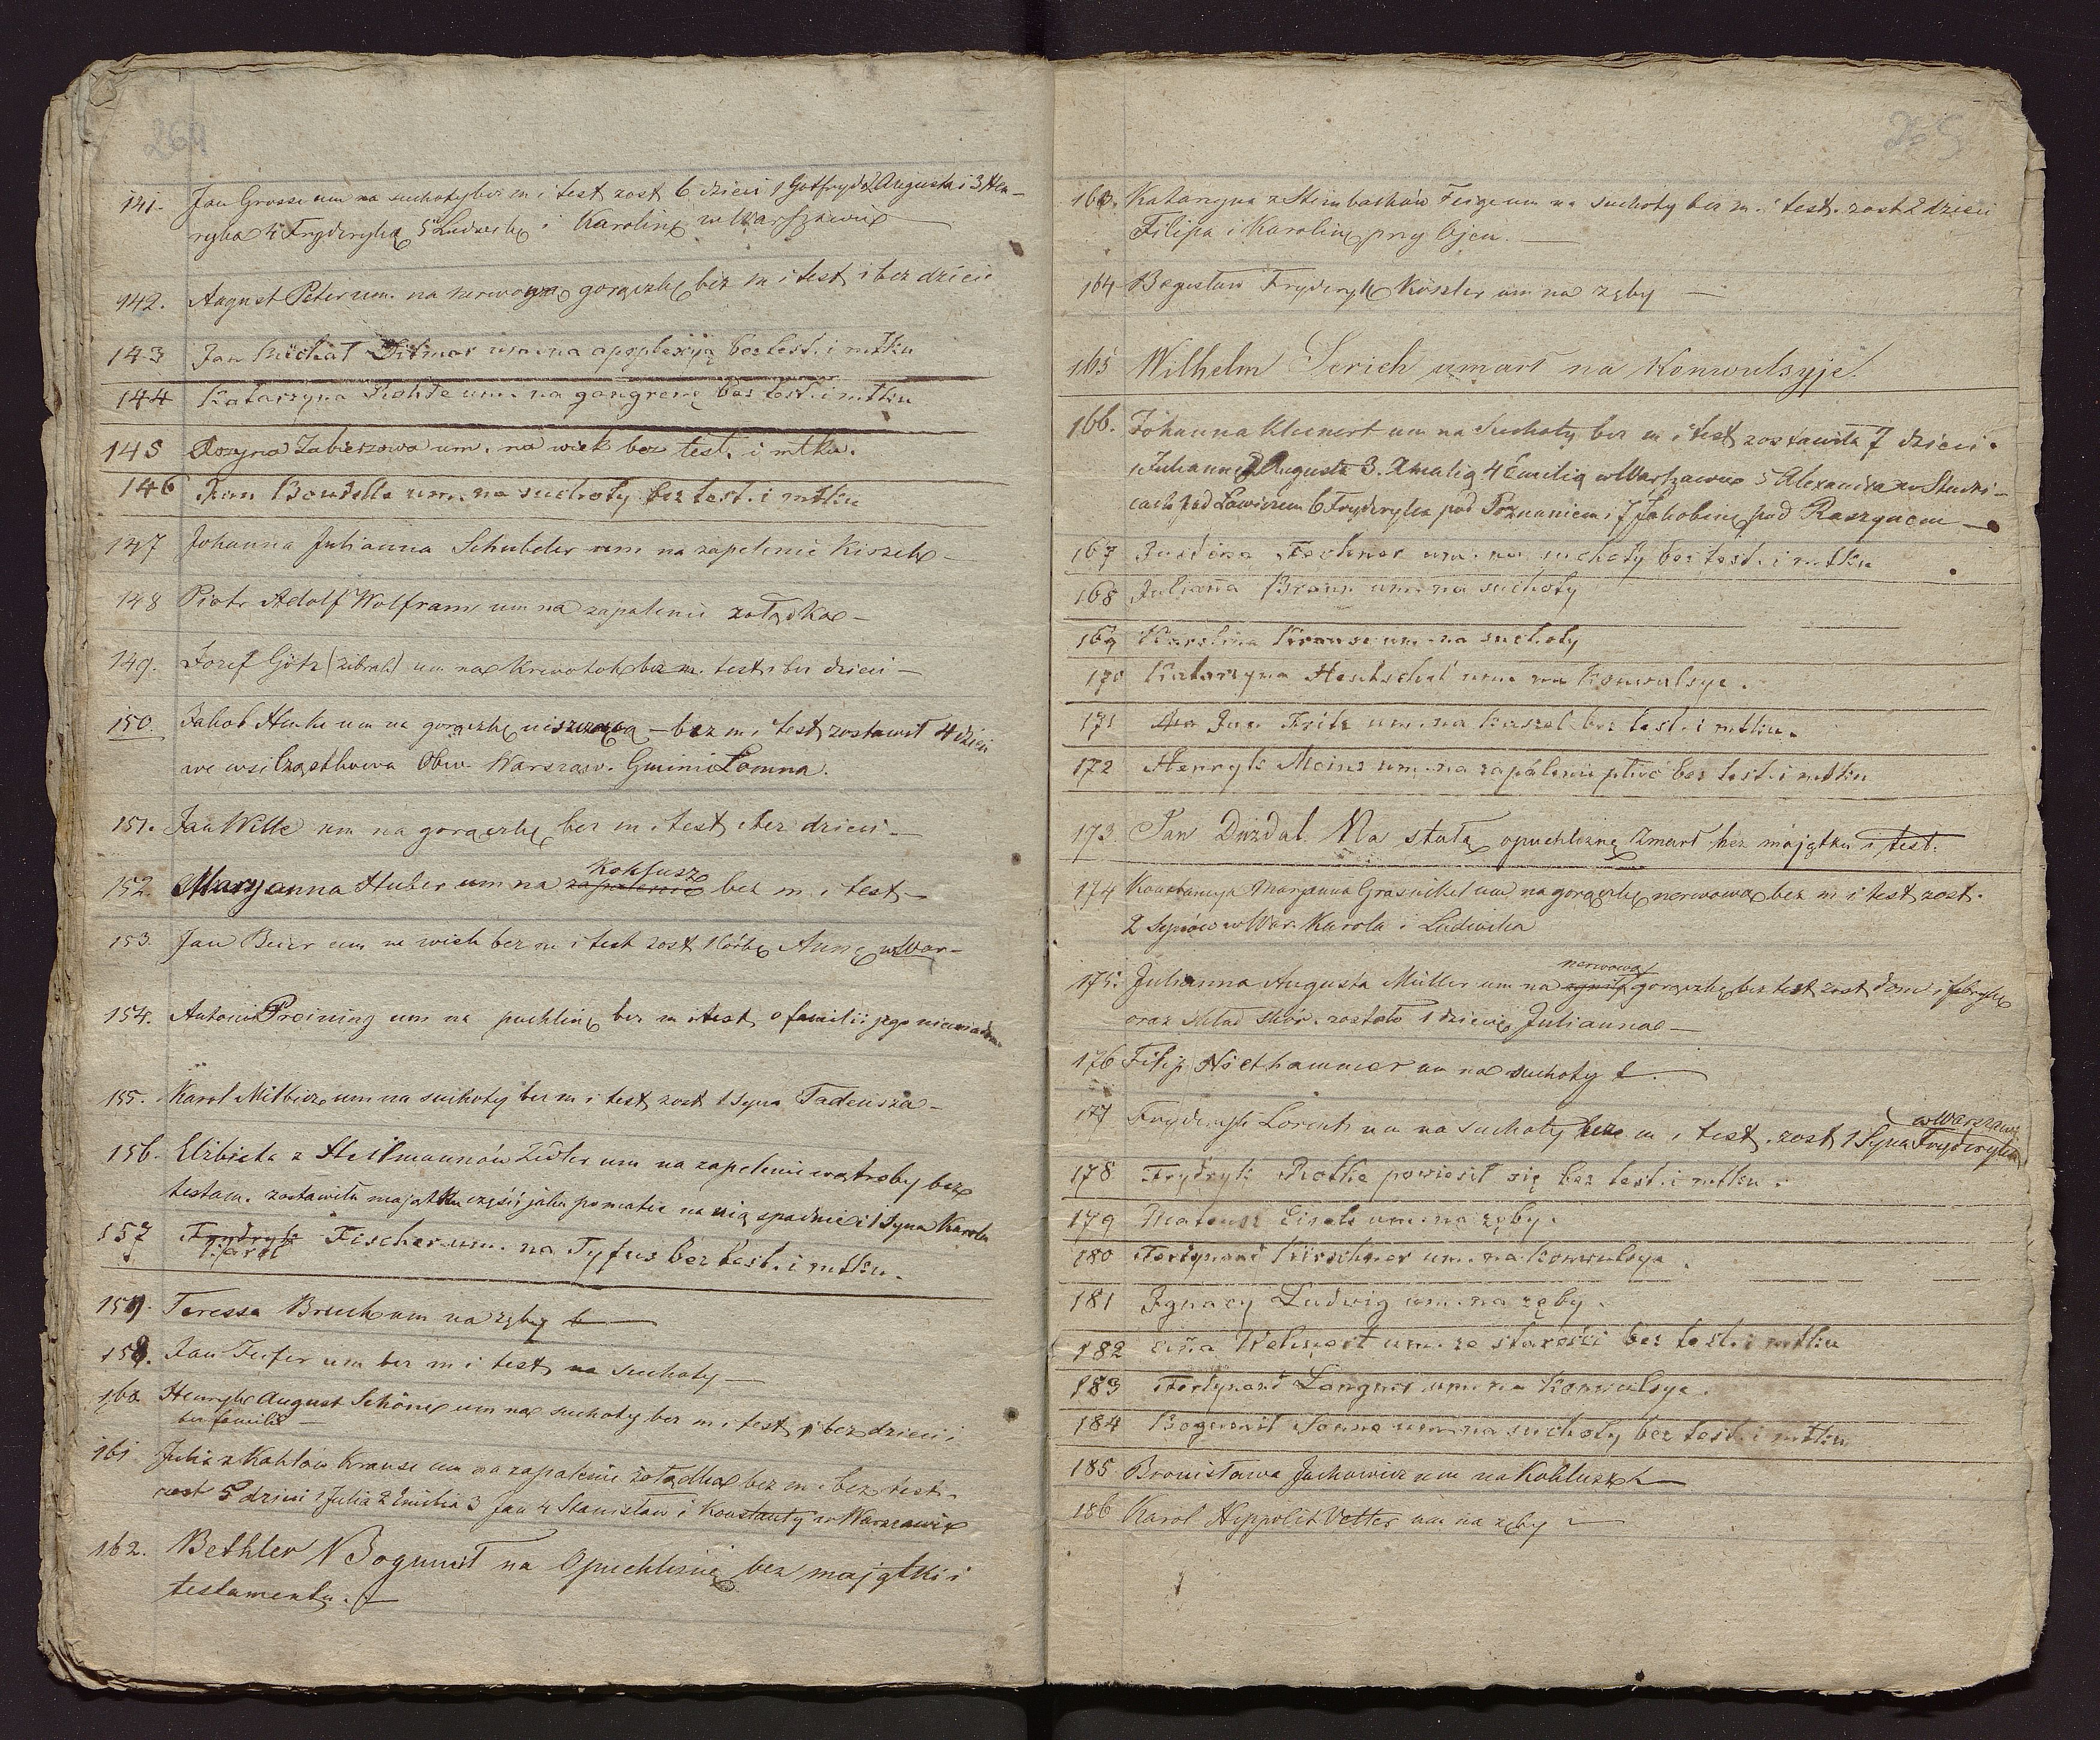 264
141. Jan Grosse um na suchoty bez m i test zost 6 dzieci 1 Gotfryda 2 Augusta i 3 Hen-
ryka 4 Fryderyka 5 Ludwikę i Karolinę w Warszawie
142. August Peter um. na nerwową gorączkę bez m i test i bez dzieci
143 Jan Michał Ditmar um. na apoplexyją bez test. i mtku
144 Katarzyna Rohde um. na gangrenę bez test. i mtku
145 Rozyna Zabieszowa um. na wiek bez test. i mtku.
146 Jan Boudelle um. na suchoty bez test. i mtku
147 Johanna Julianna Schubeler um na zapelenie Kiszek –
148 Piotr Adolf Wolfram um na zapalenie zołądka –
149. Jozef Götz (zibrah) um na Krwotok bez m. test i bez dzieci –
150. Jakob Henke um na gorączkę niszczącą – bez m i test zostawił 4 dzieci
we wsi Cząstkowa Obw. Warszaw. Gminie Łomna.
151. Jan Wilke um na gorączkę bez m i test i bez dzieci –
Koklusz
152. Maryanna Huber um na zapalenie bez m. i test –
153. Jan Beier um na wiek bez m i test zost 1 córkę Annę w War–
154. Antoni Preining um na puchlinę bez m i test, o familii jego niewiadomo
155. Karol Milbitz um na suchoty bez m i test zost 1 Syna Tadeusza –
156. Elżbieta z Heilmannów Zedler um na zapelenie wątroby bez
testam. zostawiła majątku części jaka po matce na nią spadnie i 1 Syna Karola
157 Fryderyk Fischer um. na Tyfus bez test. i mtku.
Karol
158. Teressa Bruck um na zęby
159. Jan Teifer um bez m i test na Suchoty –
160 Henryk August Schöne um na suchoty bez m i test i bez dzieci i
bez familii –
161 Julia z Kahlów Krause um na zapalenie żołądka bez m i bez test
zost 5 dzieci 1 Julia 2 Emilia 3 Jan 4 Stanisław i Konstanty w Warszawie
162. Bethler Bogumił na Opuchlinię bez majątki i
testamentu. –
265
163. Katarzyna z Steinbachów Feige um na suchoty bez m. i test. zost 2 dzieci
Filipa i Karolinę przy Ojcu. –
164 Bogusław Fryderyk Köszler um na zęby –
165 Wilhelm Serich umarł na Konwulsyje.
166. Johanna Klienert um na Suchoty bez m i test zostawiła 7 dzieci.
1 Juliannę 2 Augusta 3. Amalią 4 Emilią w Warszawie 5 Alexandra w Słucki-
cach pod Łowiczem 6 Fryderyka pod Poznaniem i 7 Jakobinę pod Raszynem –
167 Justina Fechner um. na suchoty bez test. i mtku
168 Julianna Braun um. na suchoty
169 Karolina Krause um. na suchoty
170 Katarzyna Hentschel um. na Konwulsye.
171 Jan Fritz um. na kaszel bez test. i mtku.
172 Henryk Meins um. na zapalenie płuc bez test. i mtku
173. Jan Duzdal. Na stałą opuchliznę Zmarł bez majątku i test.
174 Konstancya Maryanna Grasnikel um na gorączkę nerwową bez m i test zost.
2 Synów w War. Karola i Ludwika
nerwową
175. Julianna Augusta Müller um na zgniłą gorączkę bez test zost dom i fabrykę
oraz skład skór. zostało 1 dziecię Julianna –
176 Filip Niethammer um na suchoty
w Warszawie
177 Fryderyk Lorentz um na suchoty bez m i test. zost 1 Syna Fryderyka
178 Frydryk Rothe powiesił się bez test. i mtku.
179 Mateusz Eisele um. na zęby.
180 Ferdynand Kirschner um. na Konwulsye.
181 Ignacy Ludwig um. na zęby.
182 Ewa Wehnert um. ze starości bez test. i mtku
183 Ferdynand Langner um. na Konwulsye.
184 Bogumił Sonne um. na suchoty bez test. i mtku
185 Bronisława Jachowicz um na Koklusz
186 Karol Hippolit Vetter um na zęby –